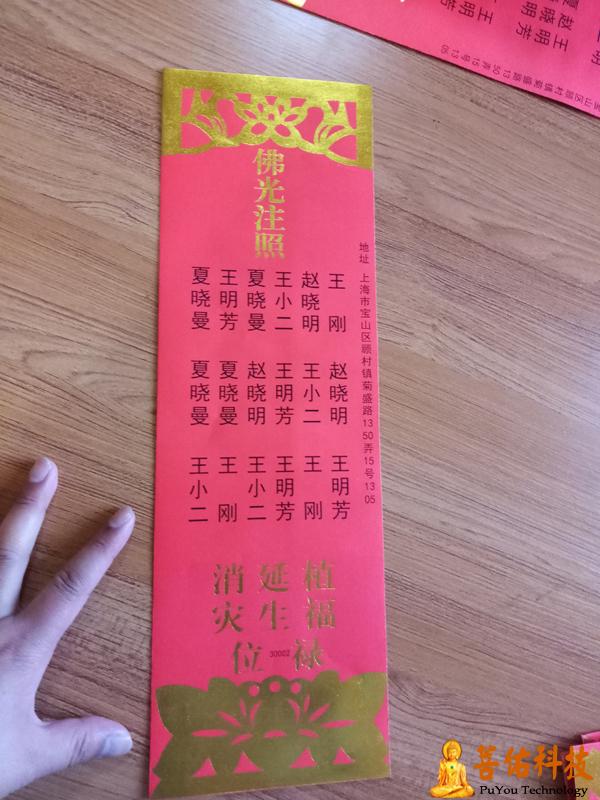 佛光注照
地址 上海市宝山区顾村镇菊盛路1350弄15号1305
王刚
赵晓明
王小二
夏晓曼
王明芳
夏晓曼
赵晓明
王小二
王明芳
赵晓明
夏晓曼
夏晓曼
王明芳
王刚
王明芳
王小二
王刚
王小二
植福禄
延生
消灾位
30002
菩佑科技
PuYou Technology